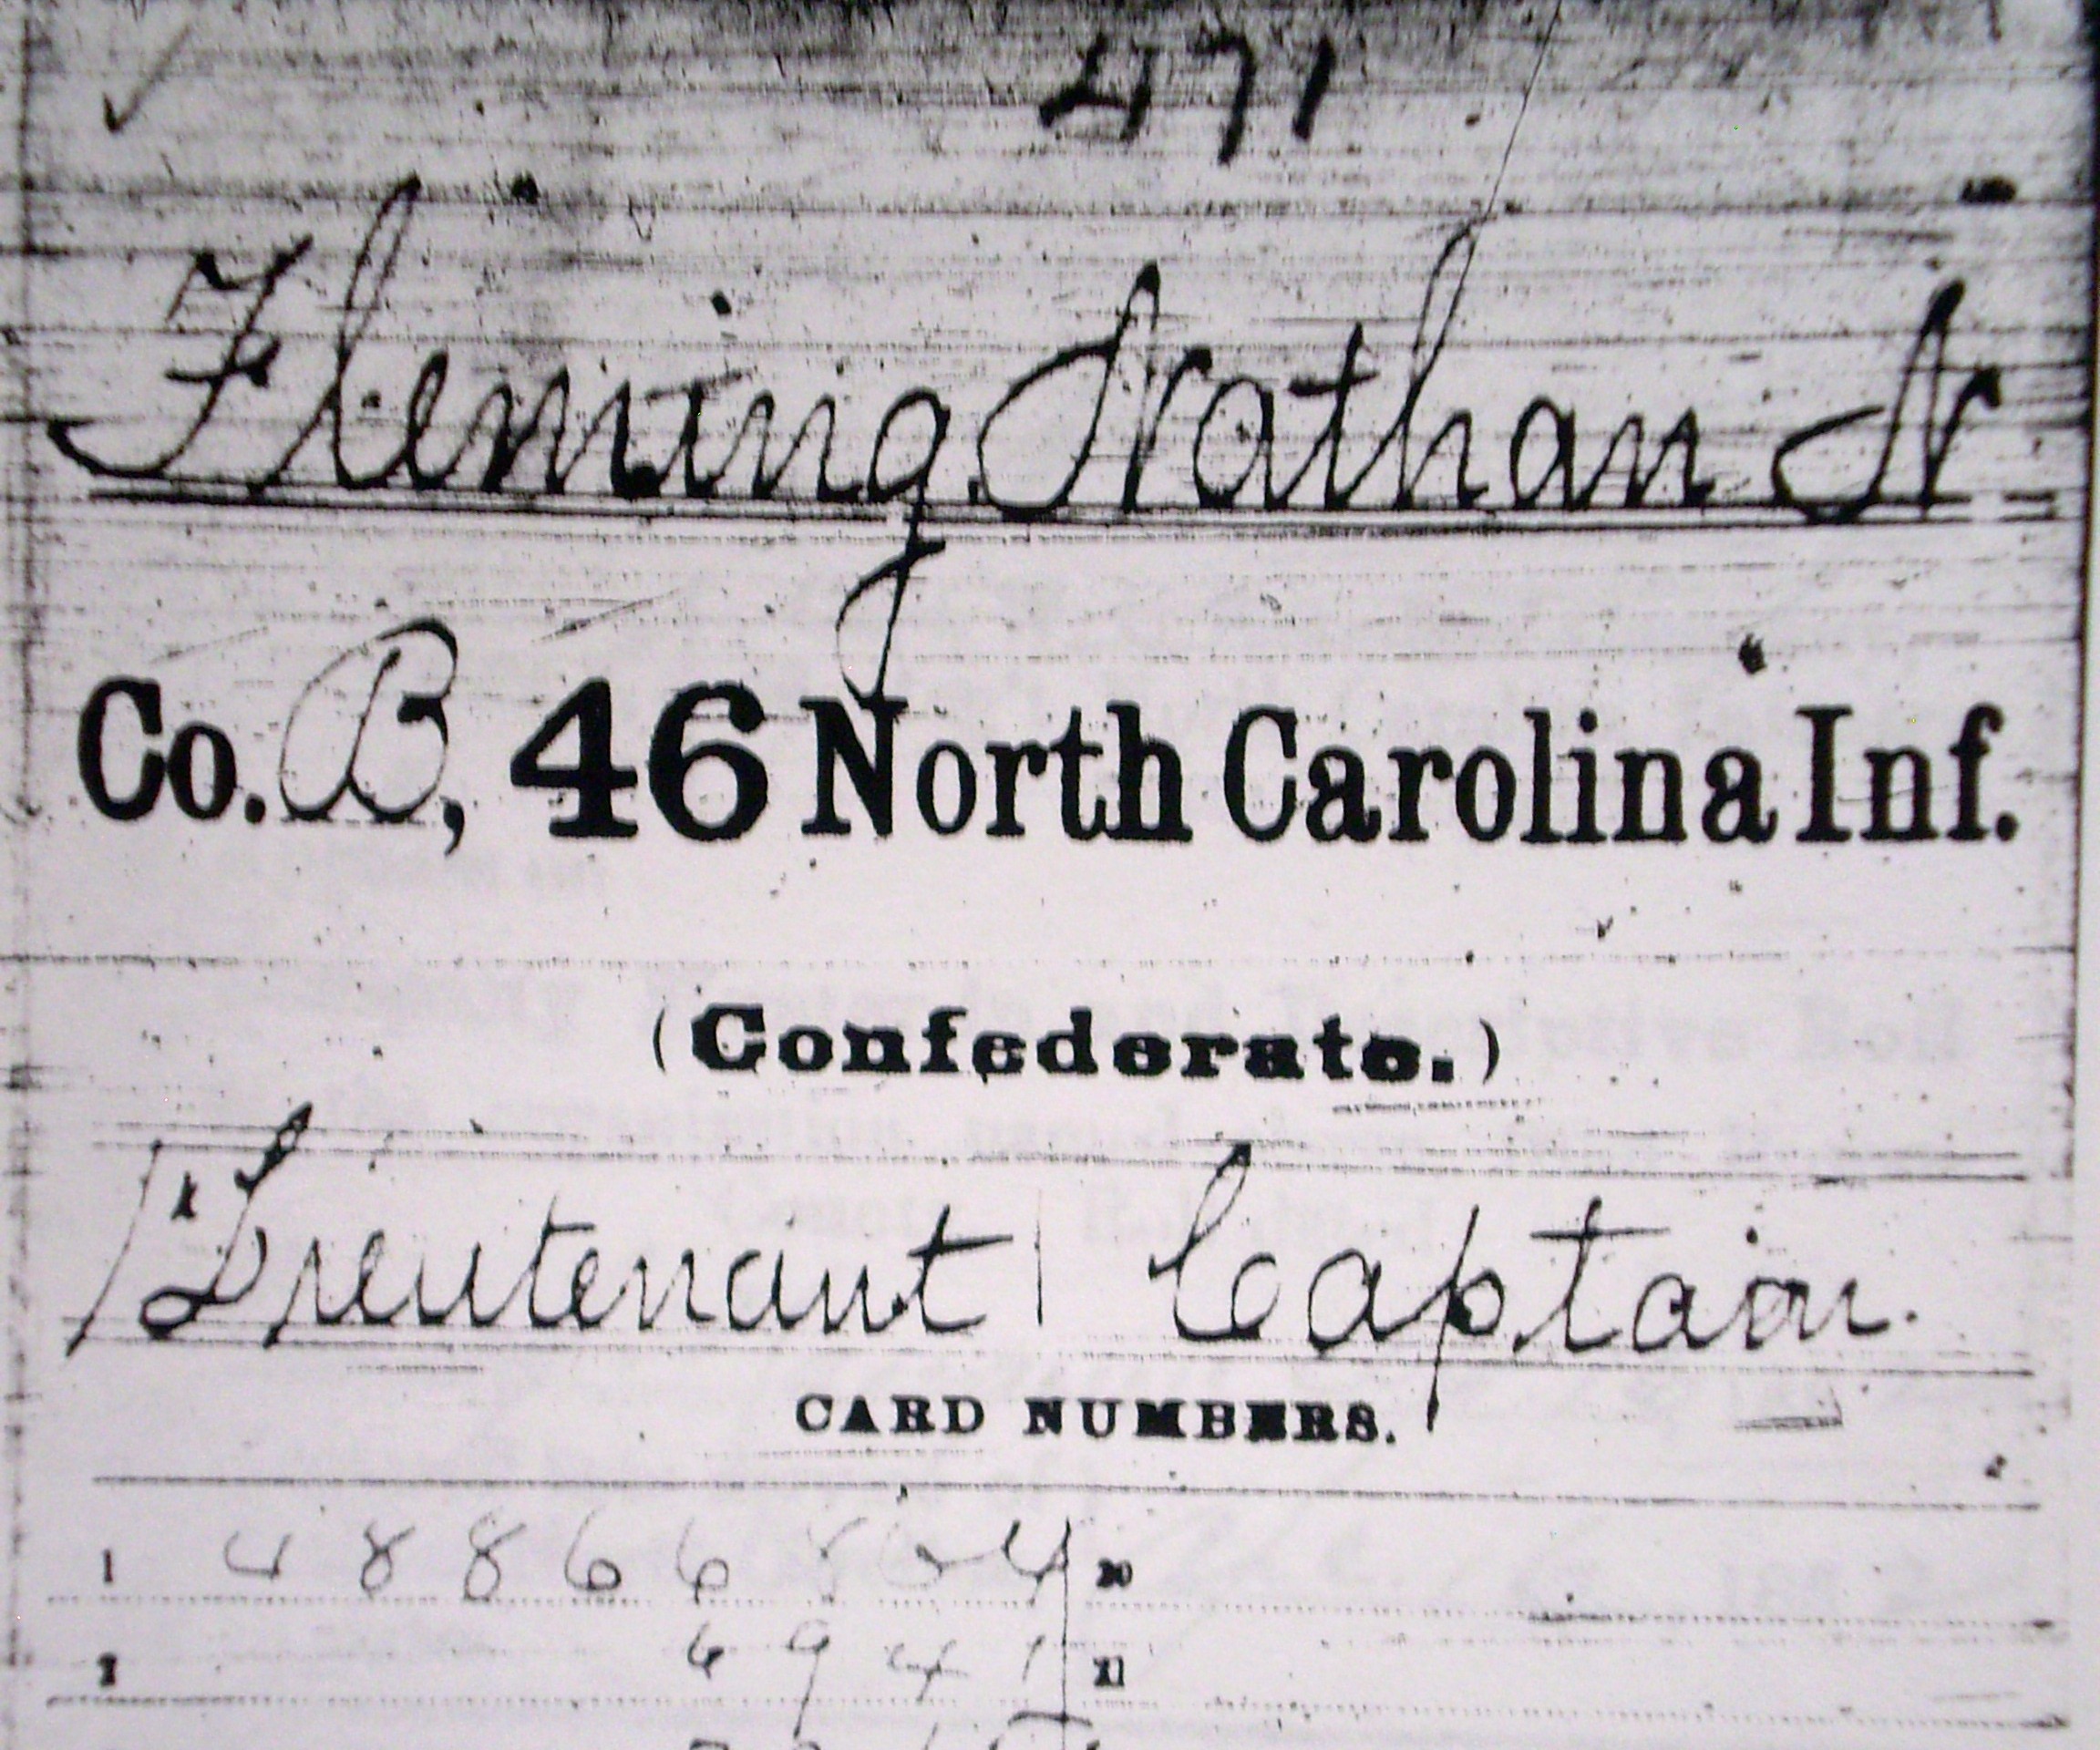 471
Fleming, Nathan N.
Co. B, 46 North Carolina Inf.
(Confederate.)
1 Lieutenant | Captain.
CARD NUMBERS.
1 48866 4 20
2 6941 21